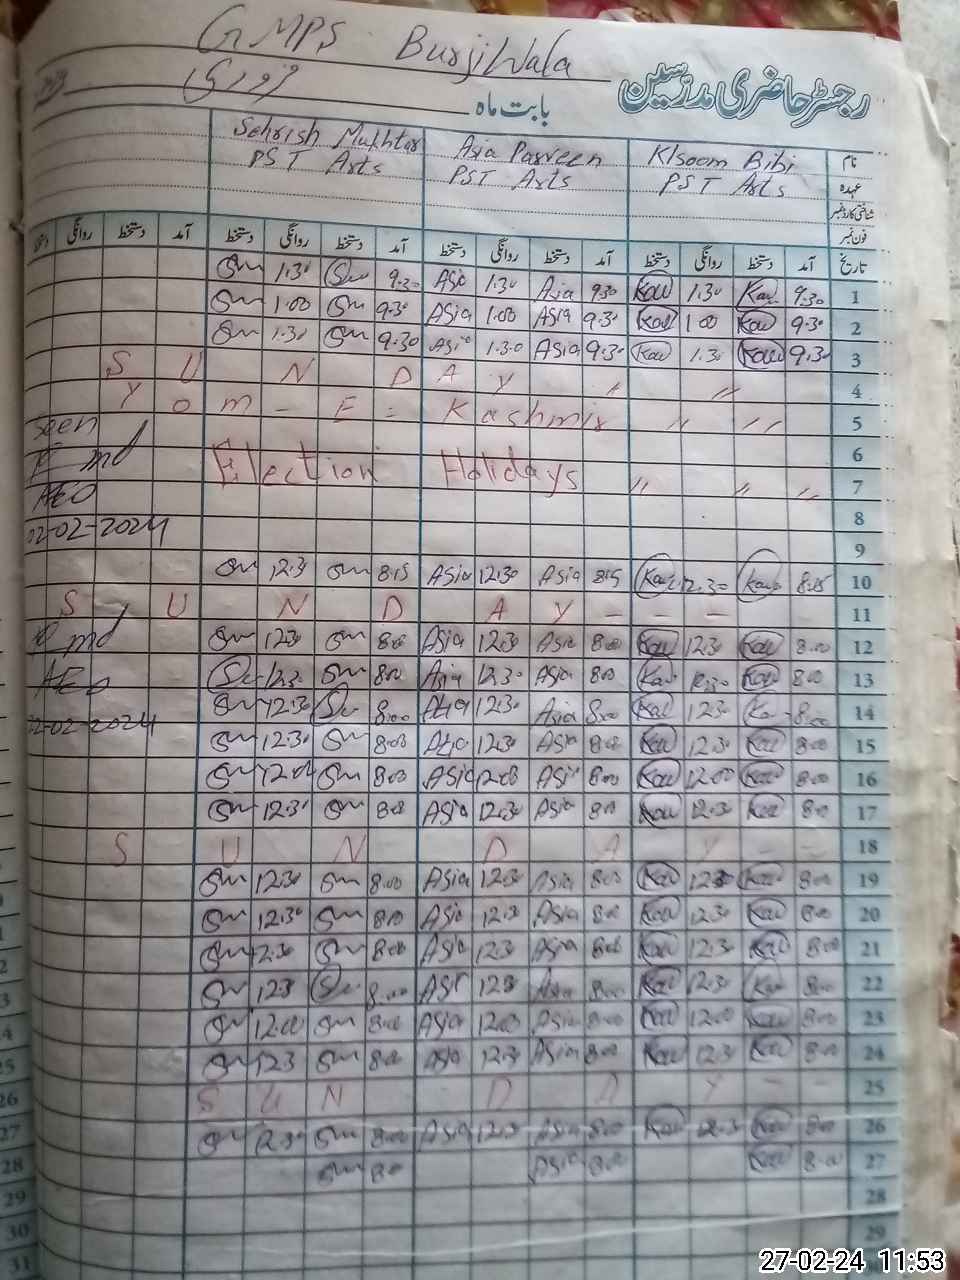 GMPS BurjiWala
رجسٹر حاضری مدرسین
بابت ماہ فروری
Sehrish Mukhtar Asia Parveen Klsoom Bibi نام
PST Arts PST Arts PST Arts عہدہ
شناختی کارڈ نمبر
فون نمبر
روانگی دستخط آمد دستخط روانگی دستخط آمد دستخط روانگی دستخط آمد دستخط روانگی دستخط آمد تاریخ
Sm 1.30 9.30 Asia 1.30 Asia 9.30 Kau 1.30 Kau 9.30 1
Sm 1.00 Sm 9.30 Asia 1.00 Asia 9.30 Kau 1.00 Kau 9.30 2
Sm 1.30 Sm 9.30 Asia 1.30 Asia 9.30 Kau 1.30 Kau 9.30 3
S U N D A Y " " 4
Y o m - E = Kashmir " " " 5
Seen
6
Election Holidays " " " 7
AEO
8
02-02-2024
9
Sm 12.30 Sm 8.15 Asia 12.30 Asia 8.15 Kau 12.30 Kau 8.15 10
S U N D A Y - - - 11
Sm 12.30 Sm 8.00 Asia 12.30 Asia 8.00 Kau 12.30 Kau 8.00 12
AEO
12.30 Sm 8.00 Asia 12.30 Asia 8.00 Kau 12.30 Kau 8.00 13
02-02-2024
Sm 12.30 8.00 Asia 12.30 Asia 8.00 Kau 12.30 Kau 8.00 14
Sm 12.30 Sm 8.00 Asia 12.30 Asia 8.00 Kau 12.30 Kau 8.00 15
Sm 12.00 Sm 8.00 Asia 12.00 Asia 8.00 Kau 12.00 Kau 8.00 16
Sm 12.30 Sm 8.00 Asia 12.30 Asia 8.00 Kau 12.30 Kau 8.00 17
S U N D A Y - - 18
Sm 12.30 Sm 8.00 Asia 12.30 Asia 8.00 Kau 12.30 Kau 8.00 19
Sm 12.30 Sm 8.00 Asia 12.30 Asia 8.00 Kau 12.30 Kau 8.00 20
Sm 12.30 Sm 8.00 Asia 12.30 Asia 8.00 Kau 12.30 Kau 8.00 21
Sm 12.30 8.00 Asia 12.30 Asia 8.00 Kau 12.30 Kau 8.00 22
Sm 12.00 Sm 8.00 Asia 12.00 Asia 8.00 Kau 12.00 Kau 8.00 23
Sm 12.30 Sm 8.00 Asia 12.30 Asia 8.00 Kau 12.30 Kau 8.00 24
S U N D A Y - - 25
Sm 12.30 Sm 8.00 Asia 12.30 Asia 8.00 Kau 12.30 Kau 8.00 26
Sm 8.00 Asia 8.00 Kau 8.00 27
28
29
27-02-24 11:53